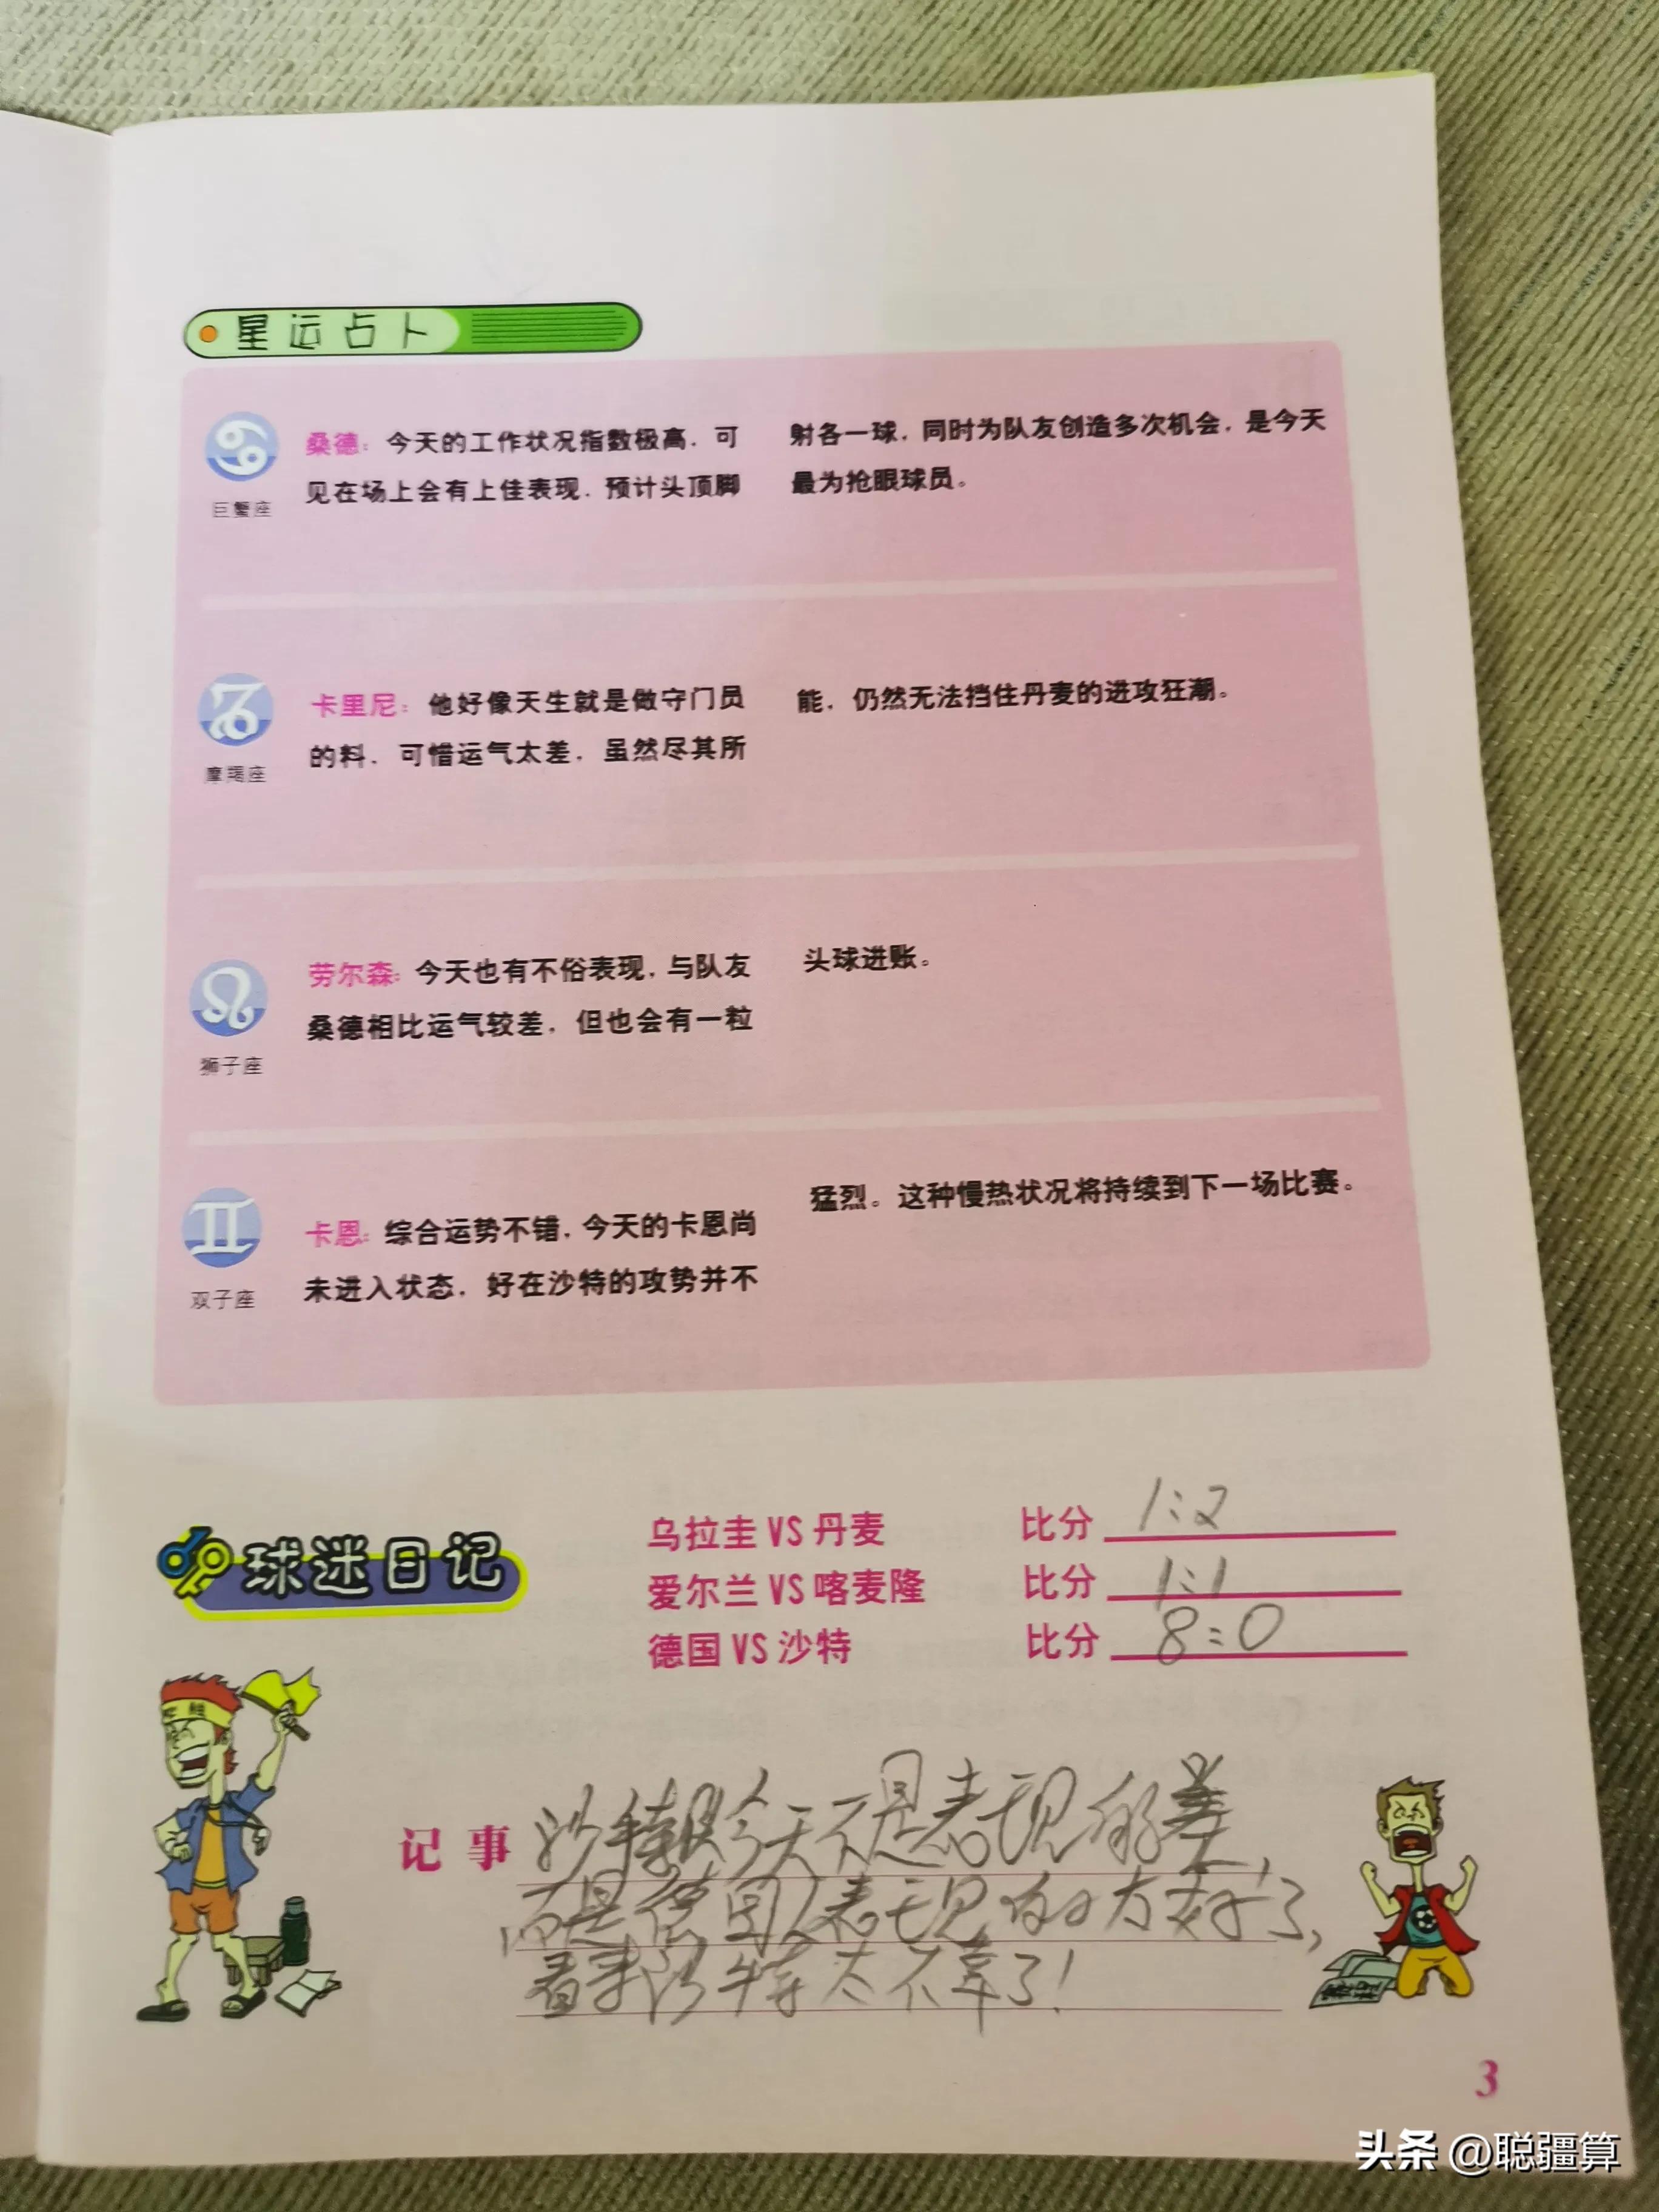 星运占卜
桑德：今天的工作状况指数极高，可
见在场上会有上佳表现，预计头顶脚
射各一球，同时为队友创造多次机会，是今天
最为抢眼球员。
巨蟹座
卡里尼：他好像天生就是做守门员
的料，可惜运气太差，虽然尽其所
能，仍然无法挡住丹麦的进攻狂潮。
摩羯座
劳尔森：今天也有不俗表现，与队友
桑德相比运气较差，但也会有一粒
头球进账。
狮子座
卡恩：综合运势不错，今天的卡恩尚
未进入状态，好在沙特的攻势并不
猛烈。这种慢热状况将持续到下一场比赛。
双子座
球迷日记
乌拉圭 VS 丹麦 比分 1:2
爱尔兰 VS 喀麦隆 比分 1:1
德国 VS 沙特 比分 8:0
记事 沙特队今天不是表现的差，
而是德国队表现的太好了，
看来沙特太不幸了！
3
头条 @聪疆算